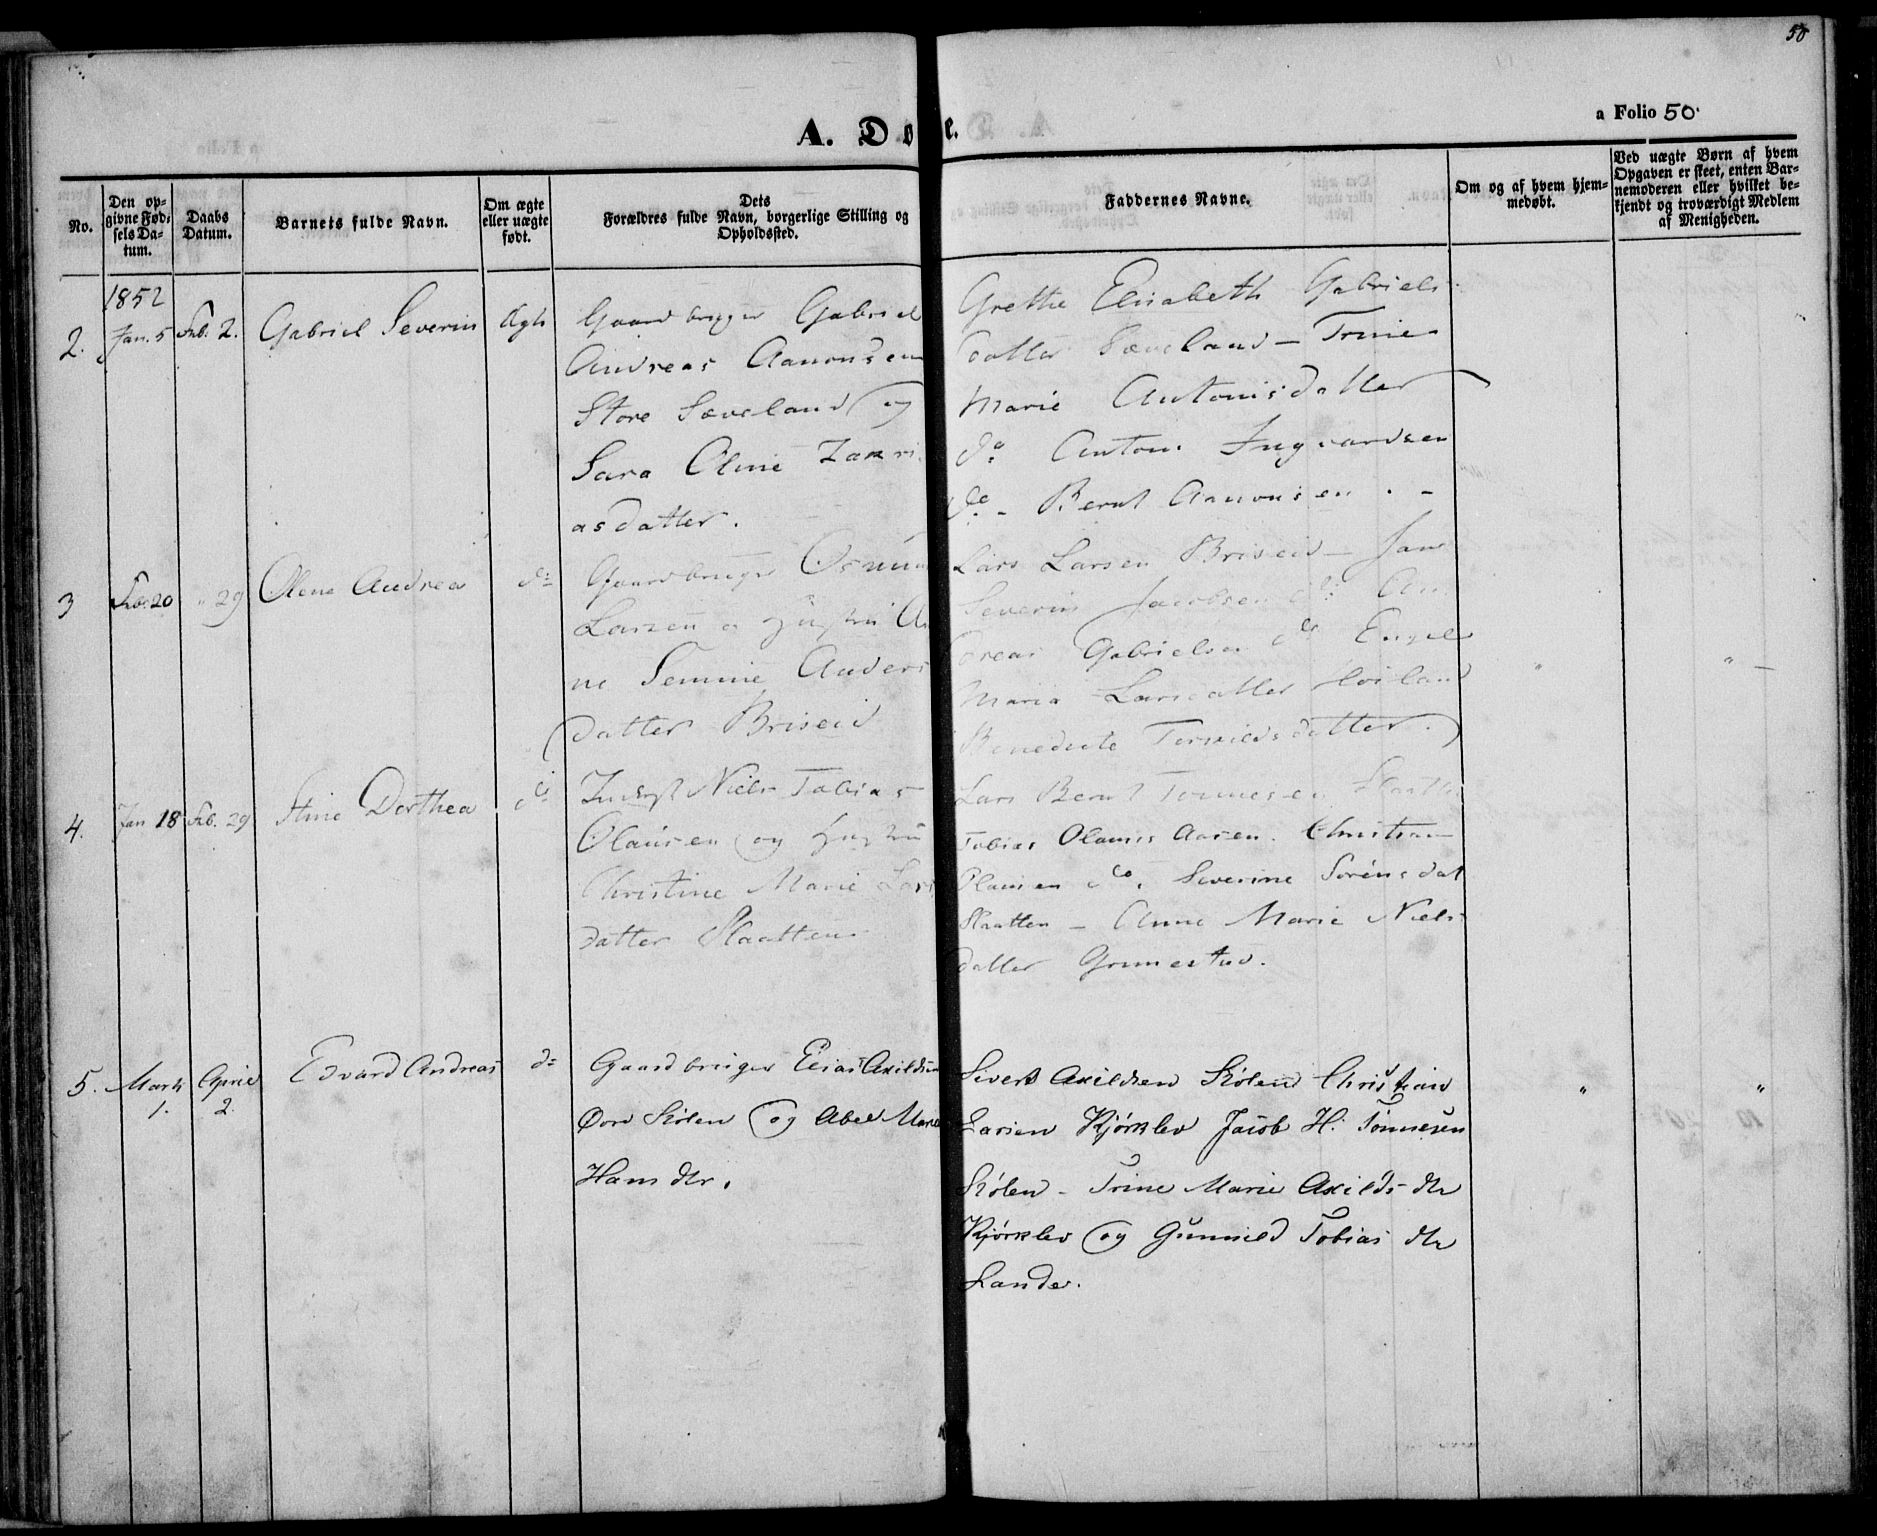 50
a Folio 50.
A. Dø e.
No.
Den op-
givne Fød-
sels Da-
tum.
Daabs
Datum.
Barnets fulde Navn.
Om ægte
eller uægte
født.
Dets
Forældres fulde Navn, borgerlige Stilling og
Opholdssted.
Faddernes Navne.
Om og af hvem hjem-
medøbt.
Ved uægte Børn af hvem
Opgaven er skeet, enten Bar-
nemoderen eller hvilket be-
kjendt og troværdigt Medlem
af Menigheden.
1852
2. Jan. 5 Feb. 2. Gabriel Severin Ægte
Gaardbruger Gabriel
Andreas Aanonsen
Store Sæveland og
Sara Oline Zakri
asdatter.
Grethe Elisabeth Gabriels
datter Sæveland - Trine
Marie Antonisdatter
do Anton Ingvardsen
do - Bernt Aanonsen . -
3 Feb. 20 " 29 Olene Andrea do
Gaardbruger Osmun
Larsen og Hustru An
ne Semine Anders
datter Briseid
Lars Larsen Briseid - Jan
Severin Jacobsen do An
dreas Gabrielsen do Engel
Maria Larsdatter Höiland
Benedicte Terkildsdatter.
" " -
4. Jan 18 Feb. 29 Stine Dorthea do
Inderst Niels Tobias
Olausen og Hustru
Christine Marie Lars
datter Slaatten
Lars Bernt Tønnesen Slaatten
Tobias Olausen Aasen. Christian
Olausen do. Severine Sörensdat
Slaatten - Anne Marie Niels
datter Grimestad.
5. Marts
1.
April
2.
Edvard Andreas do
Gaardbruger Elias Axildsen
Øvre Skölen og Abel Marie
Hans dtr.
Sivert Axildsen Skölen Christian
Larsen Kjörrslev Jacob H. Tönnesen
Skölen - Trine Marie Axilds dtr
Kjörrslev og Gunnild Tobias dtr
Lande.
" "